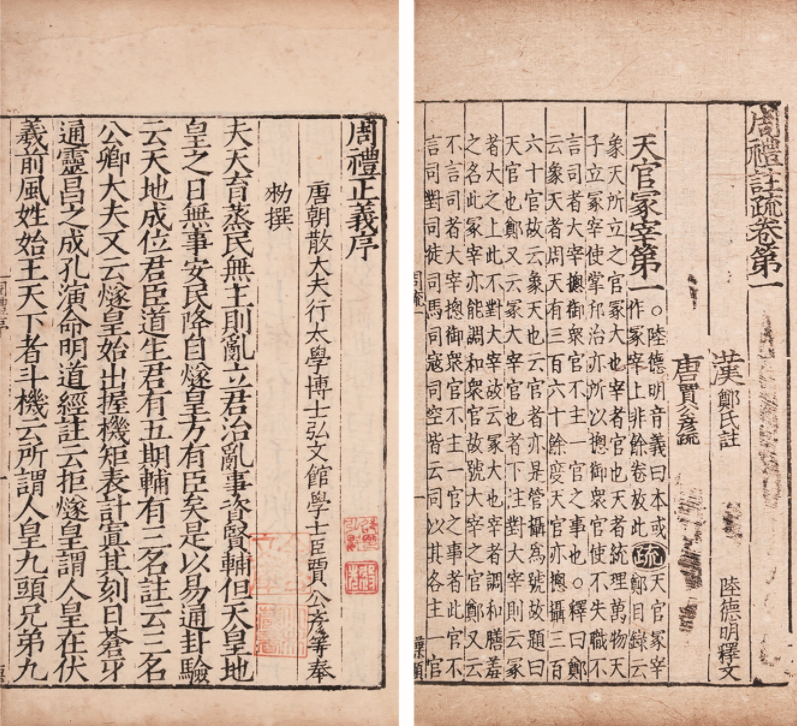 周禮正義序
唐朝散大夫行太學博士弘文館學士臣賈公彥等奉
勑撰
夫天育蒸民無主則亂立君治亂事資賢輔但天皇地
皇之日無事安民降自燧皇方有臣矣是以易通卦驗
云天地成位君臣道生君有五期輔有三名註云三名
公卿大夫又云燧皇始出握機矩表計寘其刻曰蒼牙
通靈昌之成孔演命明道經註云拒燧皇謂人皇在伏
羲前風姓始王天下者斗機云所謂人皇九頭兄弟九
周禮註疏卷第一
漢鄭氏註
陸德明釋文
唐賈公彥疏
天官冢宰第一
○陸德明音義曰本或
作冢宰上非餘卷放此
疏
天官冢宰
鄭目錄云
象天所立之官冢大也宰者官也天者統理萬物天
子立冢宰使掌邦治亦所以摠御衆官使不失職不
言司者大宰摠御衆官不主一官之事也○釋曰鄭
云象天者周天有三百六十餘度天官亦摠攝三百
六十官故云象天也云官者亦是管攝爲號故題曰
天官也鄭又云冢大宰官也者下注對大宰則云冢
者大之上此不對大宰故云冢大也宰者調和膳羞
之名此冢宰亦能調和衆官故號大宰之官鄭又云
不言司者大宰摠御衆官不主一官之事者此官不
言司對司徒司馬司寇司空皆云司以其各主一官